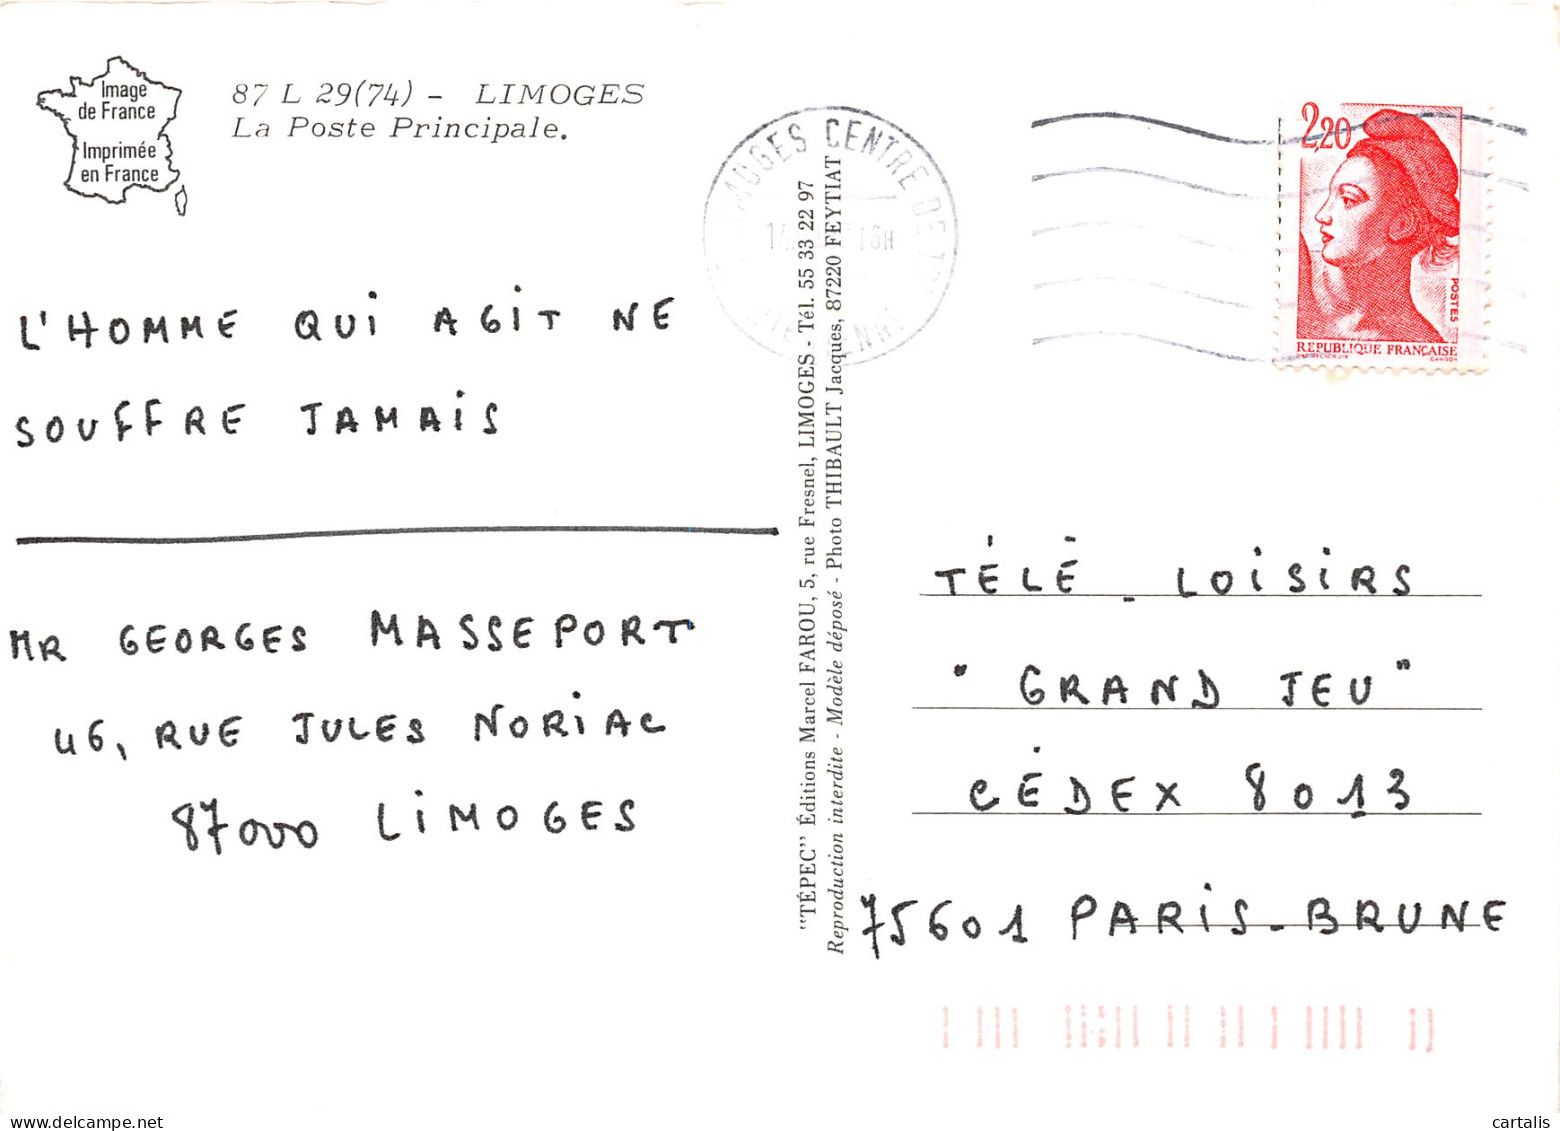 Image
de France
Imprimée
en France
87 L 29(74) - LIMOGES
La Poste Principale.
L'HOMME QUI AGIT NE
SOUFFRE JAMAIS
MR GEORGES MASSEPORT
46, RUE JULES NORIAC
87000 LIMOGES
"TÉPEC" Éditions Marcel FAROU, 5, rue Fresnel, LIMOGES - Tél. 55 33 22 97
Reproduction interdite - Modèle déposé - Photo THIBAULT Jacques, 87220 FEYTIAT
CENTRE DE
16H
2,20
POSTES
REPUBLIQUE FRANÇAISE
GANDON
TÉLÉ - LOISIRS
"GRAND JEU"
CÉDEX 8013
75601 PARIS-BRUNE
cartalis